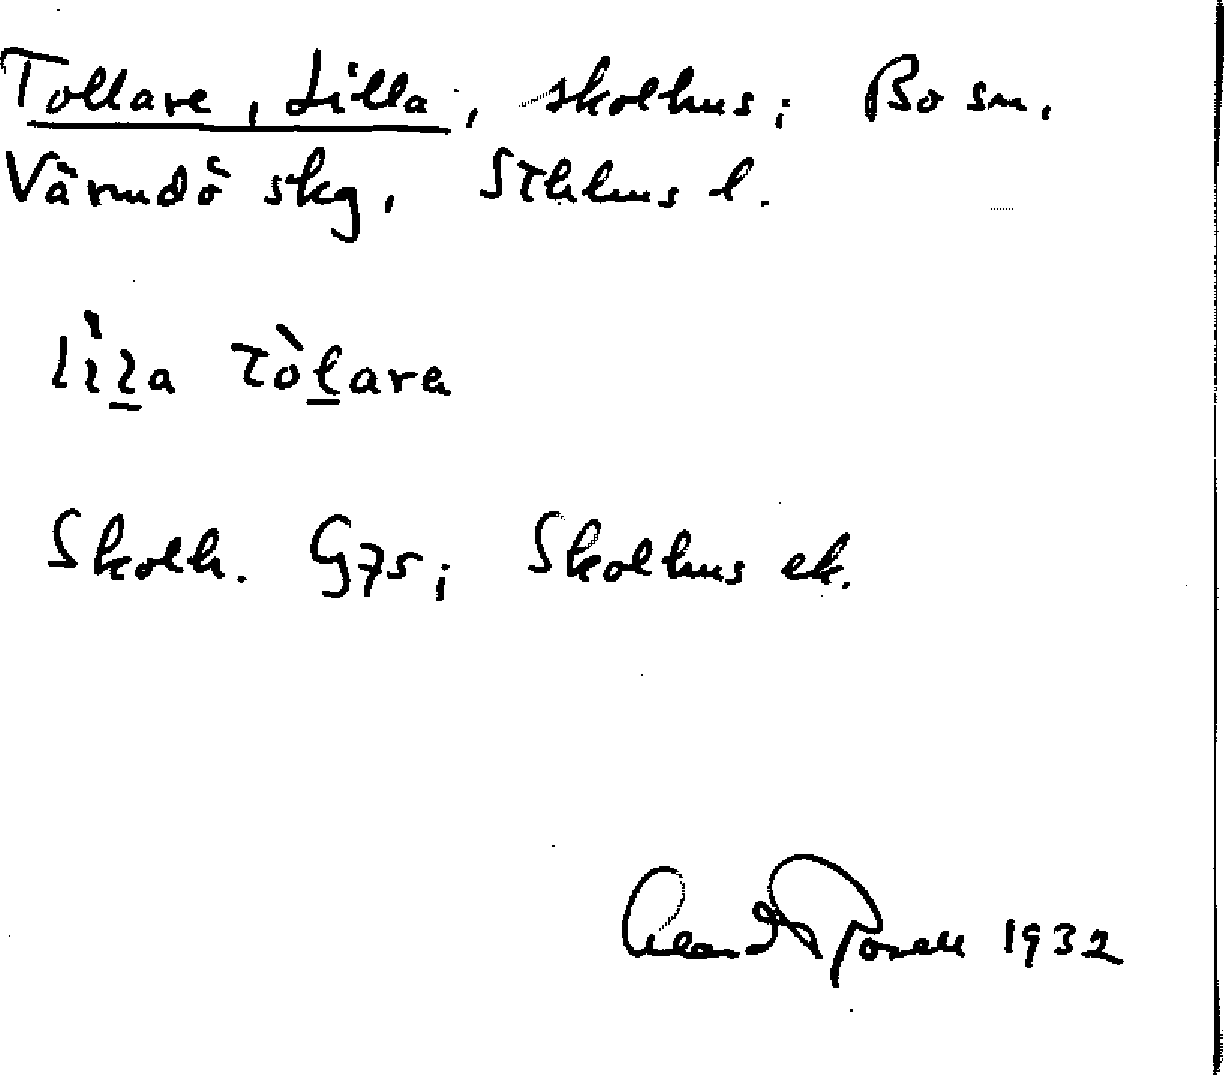 Tollare, Lilla, skolhus; Bo sn,
Värmdö skg, Sthlms l.
lìla Tòlara
Skolh. G75; Skolhus ek.
1932